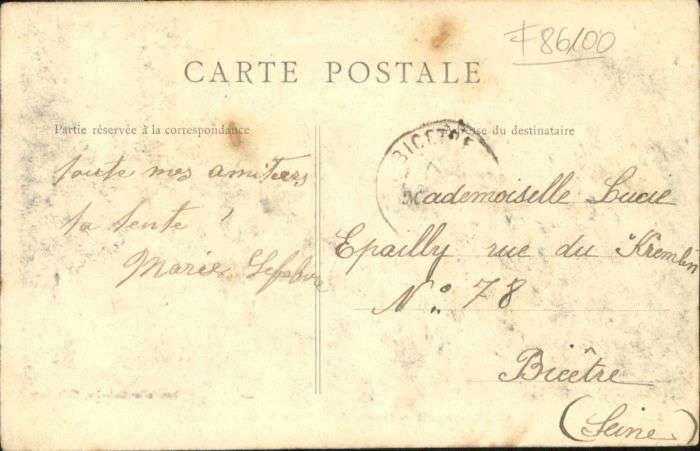 F86100
CARTE POSTALE
Partie réservée à la correspondance
Adresse du destinataire
BICETRE
toute mes amitiers
ta tente
Marie Lefebvre
Mademoiselle Lucie
Epailly rue du Kremlin
N° 78
Bicêtre
(Seine)